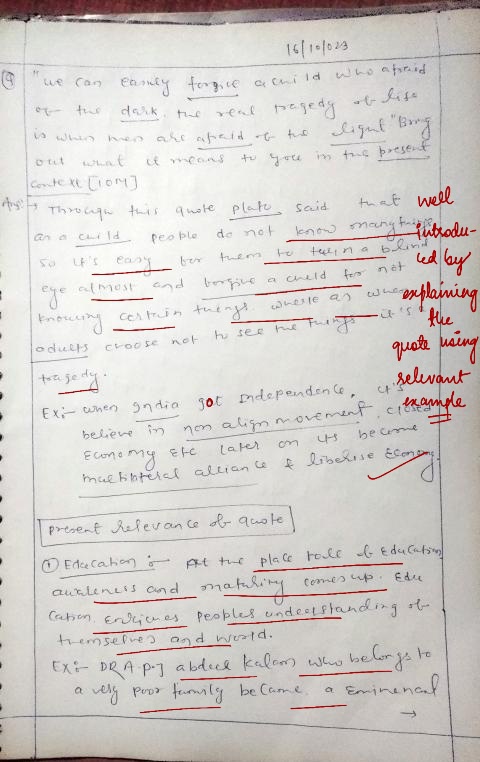 16/10/023
Q "we can easily forgive a child who afraid
of the dark. the real tragedy of life
is when men are afraid of the light" Bring
out what it means to you in the present
context [10M]
Ans:- → Through this quote plato said that
as a child people do not know many things
so it's easy for them to turn a blind
eye almost and forgive a child for not
knowing certain things. where as when
adults choose not to see the things it's
tragedy.
well
introdu-
ced by
explaining
the
quote using
relevant
example
Ex:- when India got Independence, it's
believe in non align movement, closed
Economy etc later on its become
multilateral alliance & liberlise Economy.
present relevance of quote
① Education :- At the place role of Education
awareness and maturity comes up. Edu
cation, enriches peoples understanding of
themselves and world.
Ex:- DR A.P.J abdul Kalam who belongs to
a very poor family became a Eminenent
→